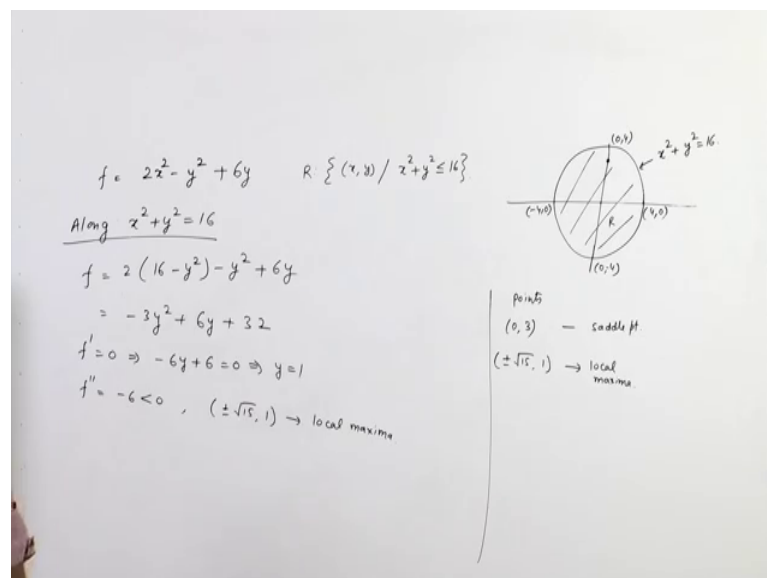 f = 2x² - y² + 6y R: {(x, y) / x² + y² ≤ 16}
Along x² + y² = 16
f = 2(16 - y²) - y² + 6y
= -3y² + 6y + 32
f' = 0 ⇒ -6y + 6 = 0 ⇒ y = 1
f'' = -6 < 0 , (±√15, 1) → local maxima
(0,4)
x² + y² = 16.
(-4,0)
(4,0)
R
(0,-4)
Points
(0, 3) — saddle pt.
(±√15, 1) → local
maxima.